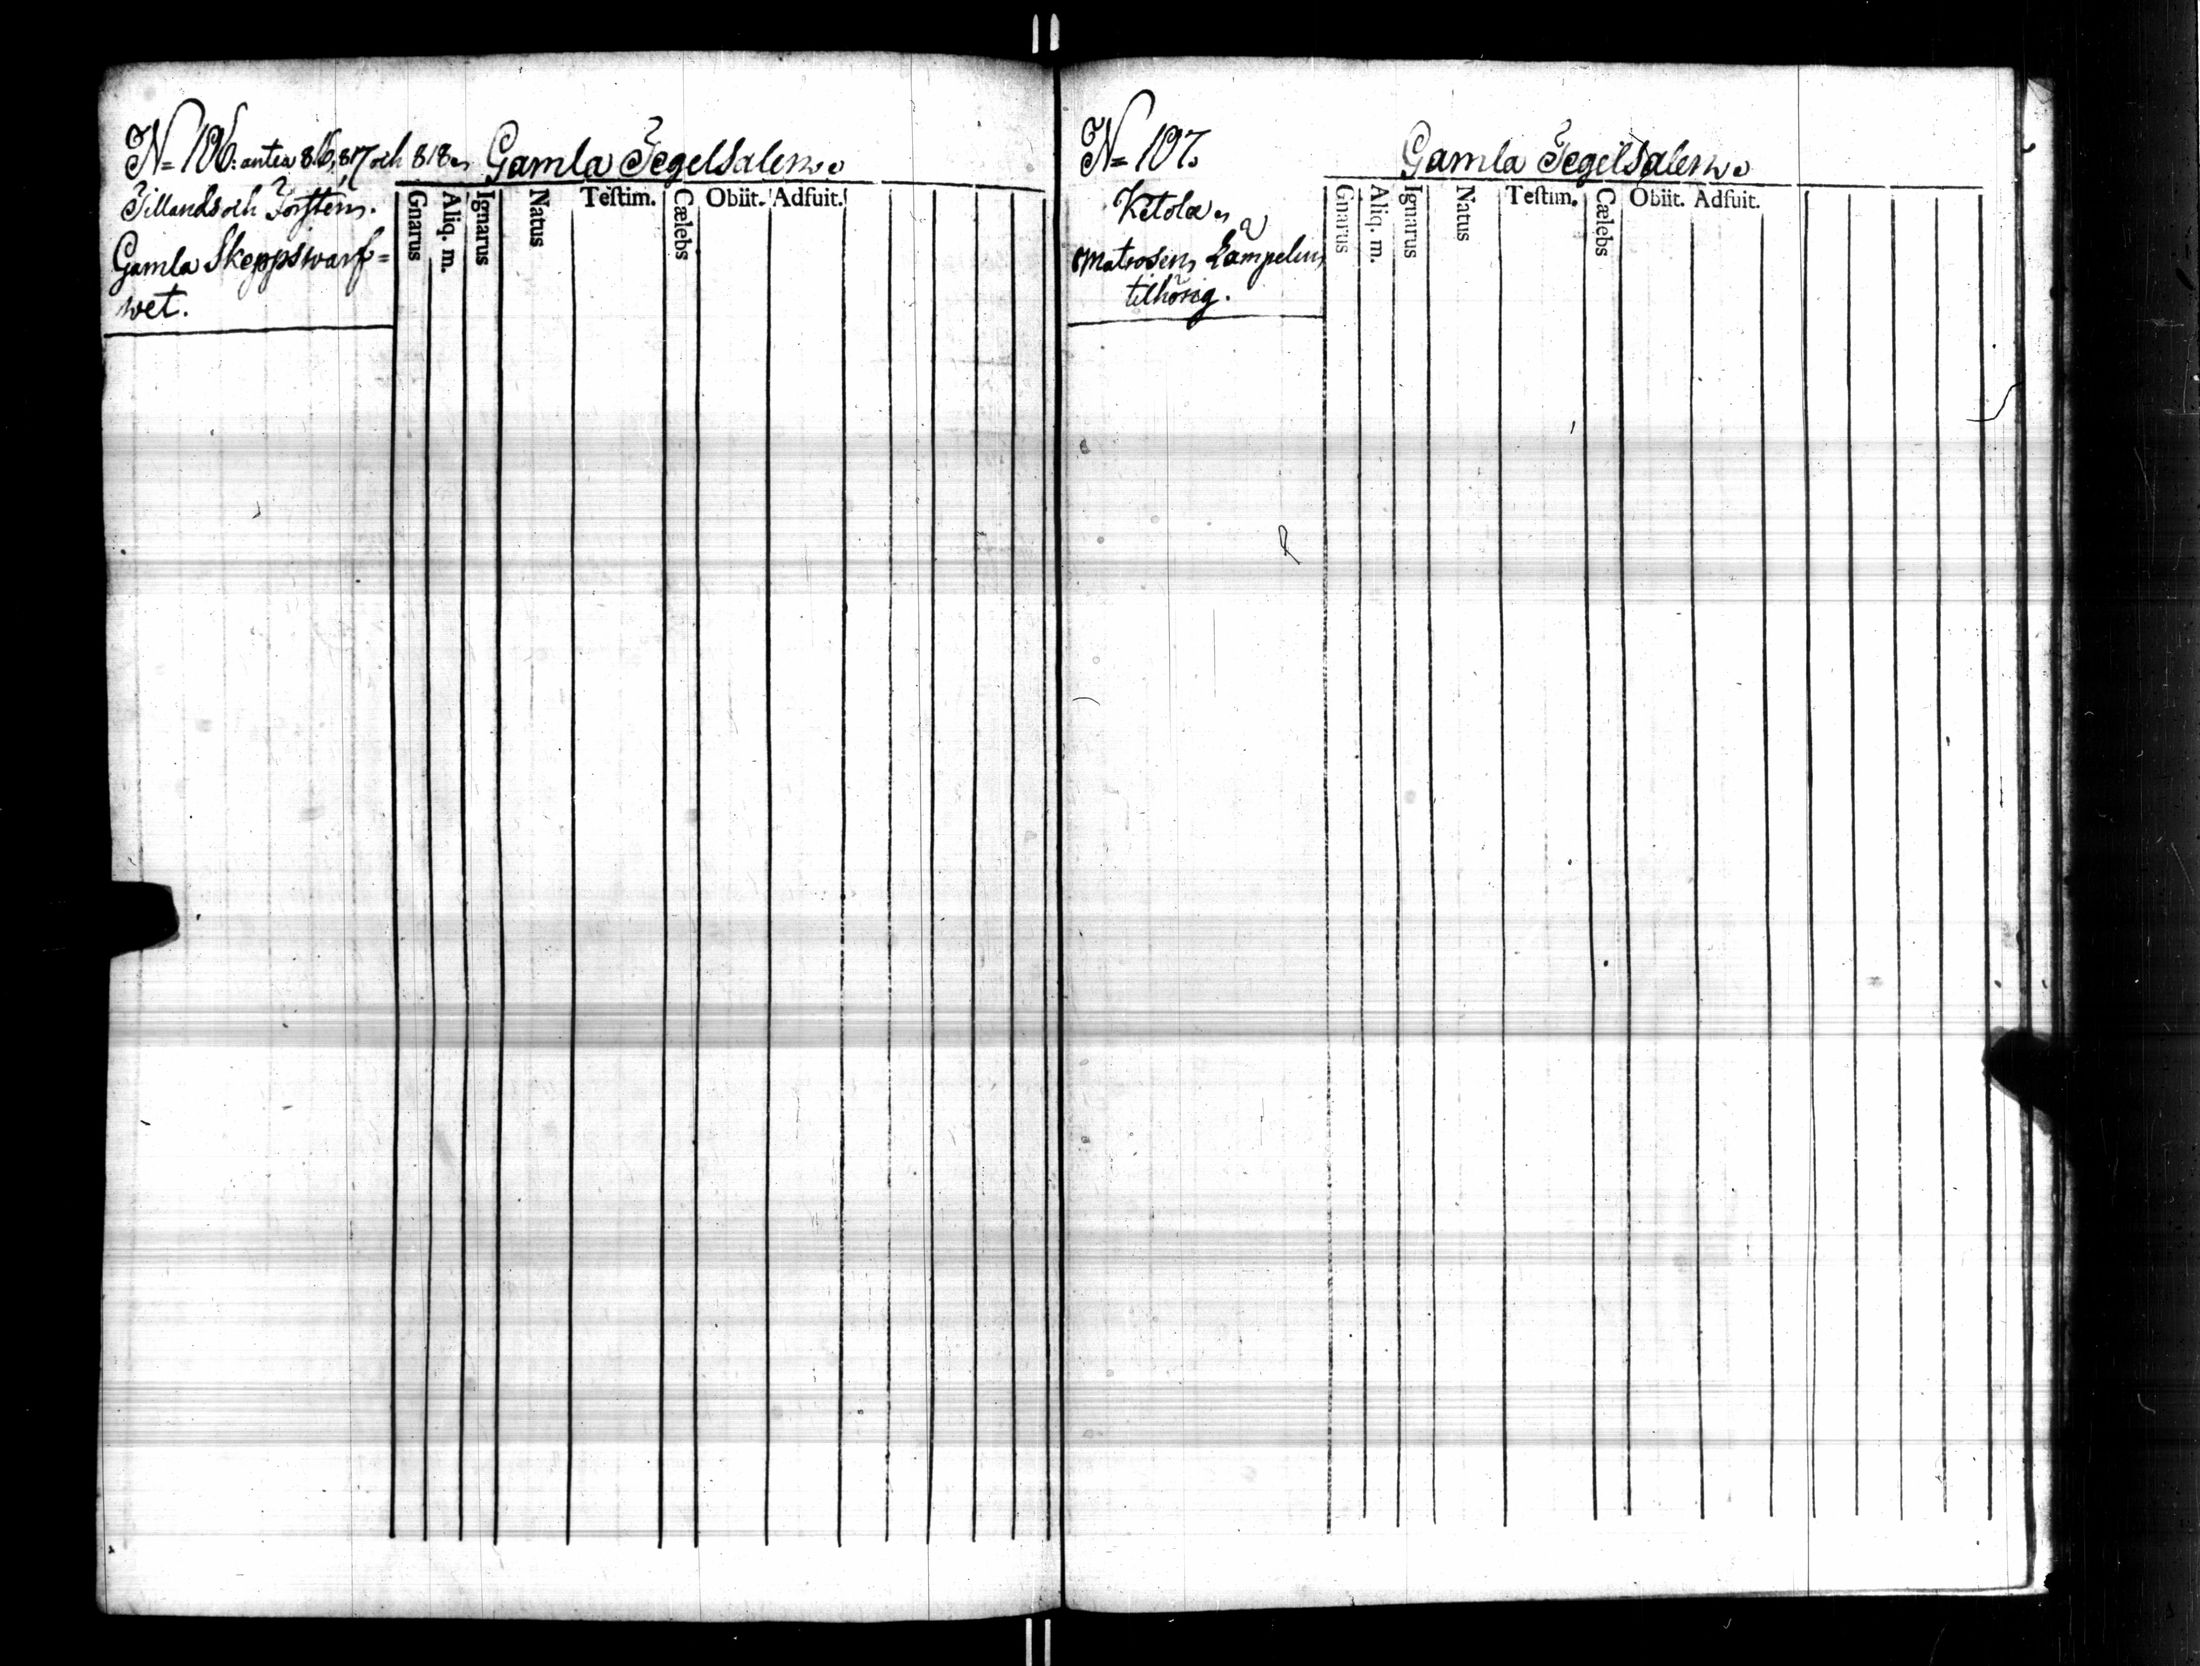 N= 106: antea 816, 817 och 818.
Gamla Tegelsalen.
Tillands och Forsténs.
Gamla Skeppswarf=
wet.
Gnarus
Aliq. m.
Ignarus
Natus
Teſtim.
Cælebs
Obiit.
Adfuit.
N= 107.
Gamla Tegelsalen.
Ketola.
Matrosen Lampelin
tilhörig.
Gnarus
Aliq. m.
Ignarus
Natus
Teſtim.
Cælebs
Obiit.
Adfuit.